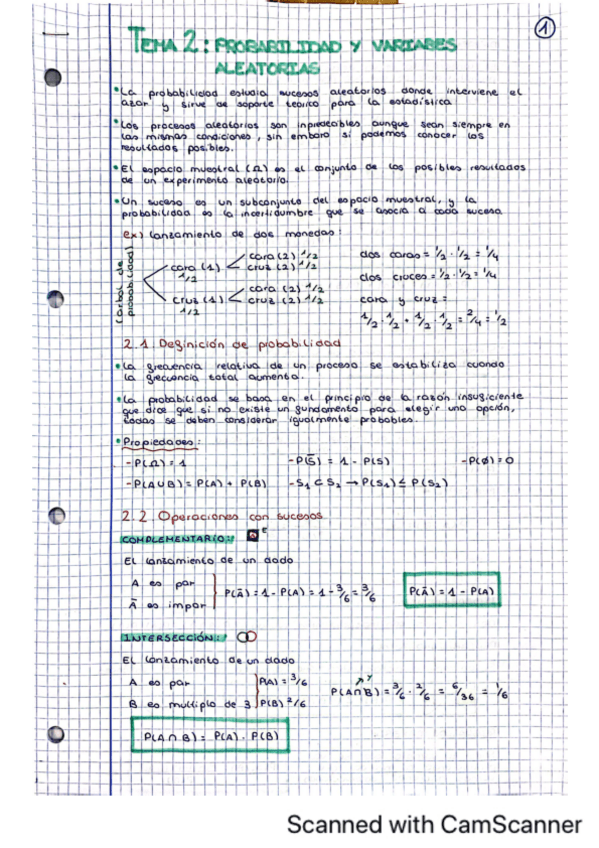 1
TEMA 2: PROBABILIDAD Y VARIABES
ALEATORIAS
• La probabilidad estudia sucesos aleatorios donde interviene el
azar y sirve de soporte teórico para la estadística
• Los procesos aleatorios son inpredecibles aunque sean siempre en
las mismas condiciones, sin embaro sí podemos conocer los
resultados posibles.
• El espacio muestral (Ω) es el conjunto de los posibles resultados
de un experimento aleatorio.
• Un suceso es un subconjunto del espacio muestral, y la
probabilidad es la incertidumbre que se asocia a cada suceso
ex) lanzamiento de dos monedas:
(árbol de probabilidad)
cara (1) 1/2
cara (2) 1/2
cruz (2) 1/2
cruz (1) 1/2
cara (2) 1/2
cruz (2) 1/2
dos caras = 1/2 · 1/2 = 1/4
dos cruces = 1/2 · 1/2 = 1/4
cara y cruz:
1/2 · 1/2 + 1/2 · 1/2 = 2/4 = 1/2
2.1. Definición de probabilidad
• La frecuencia relativa de un proceso se estabiliza cuando
la frecuencia total aumenta.
• La probabilidad se basa en el principio de la razón insuficiente
que dice que si no existe un fundamento para elegir una opción,
todas se deben considerar igualmente probables.
• Propiedades:
- P(Ω) = 1 - P(S̄) = 1 - P(S) - P(∅) = 0
- P(A∪B) = P(A) + P(B) - S₁ ⊂ S₂ → P(S₁) ≤ P(S₂)
2.2. Operaciones con sucesos
COMPLEMENTARIO: E
El lanzamiento de un dado
A es par
Ā es impar
P(Ā) = 1 - P(A) = 1 - 3/6 = 3/6
P(Ā) = 1 - P(A)
INTERSECCIÓN:
El lanzamiento de un dado
A es par P(A) = 3/6
B es multiplo de 3 P(B) 2/6
P(A∩B) = 3/6 · 2/6 = 6/36 = 1/6
y
P(A ∩ B) = P(A) · P(B)
Scanned with CamScanner